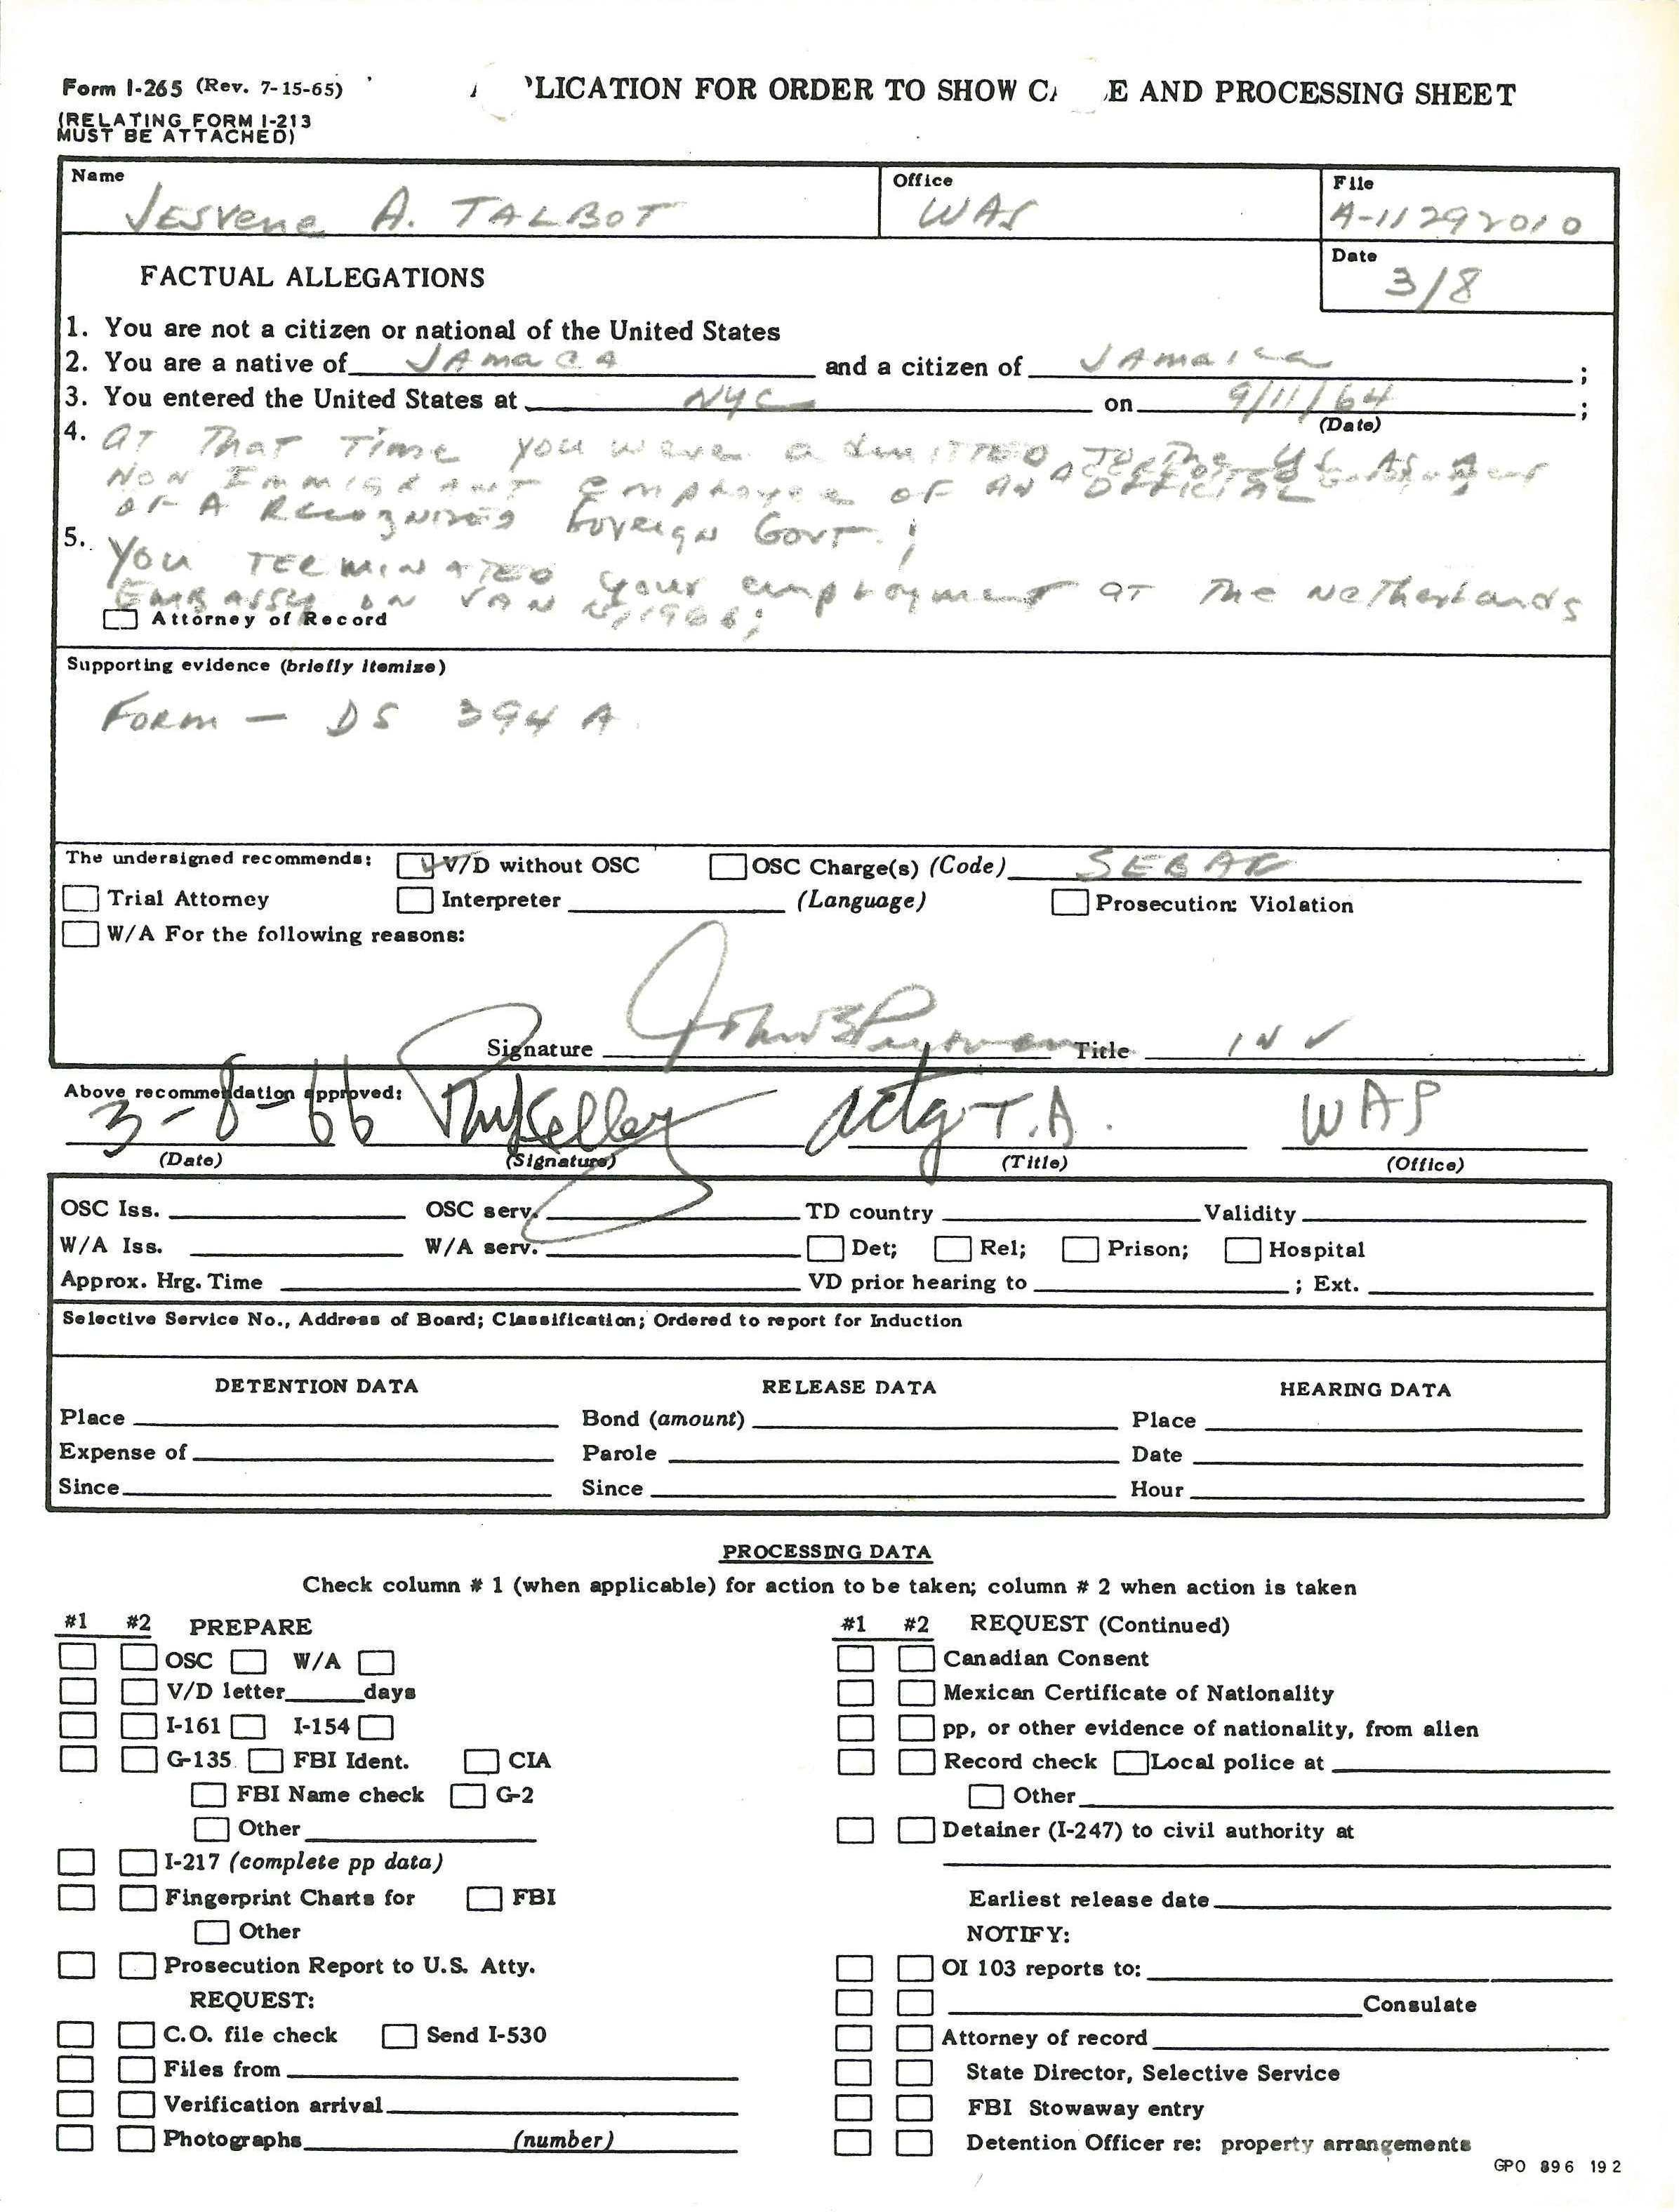 Form I-265 (Rev. 7-15-65) PLICATION FOR ORDER TO SHOW CA E AND PROCESSING SHEET
(RELATING FORM I-213
MUST BE ATTACHED)
Name Office File
Jesvene A. TALBOT WAS A-11292010
Date
3/8
FACTUAL ALLEGATIONS
1. You are not a citizen or national of the United States
2. You are a native of JAmaca and a citizen of JAmaica ;
3. You entered the United States at NYC on 9/11/64 ;
(Date)
4. AT That Time you were admitted to the U.S. As A
Non Immigrant employee of an official
of A Recognized foreign Govt.;
5. You TERMINATED your employment at The Netherlands
EMBASSY on Jan 1966;
Attorney of Record
Supporting evidence (briefly itemize)
Form — DS 394 A
The undersigned recommends: V/D without OSC OSC Charge(s) (Code)
Trial Attorney Interpreter (Language) Prosecution: Violation
W/A For the following reasons:
Signature Title INV
Above recommendation approved:
3-8-66 Actg T.A. WAS
(Date) (Signature) (Title) (Office)
OSC Iss. OSC serv. TD country Validity
W/A Iss. W/A serv. Det; Rel; Prison; Hospital
Approx. Hrg. Time VD prior hearing to ; Ext.
Selective Service No., Address of Board; Classification; Ordered to report for Induction
DETENTION DATA RELEASE DATA HEARING DATA
Place Bond (amount) Place
Expense of Parole Date
Since Since Hour
PROCESSING DATA
Check column # 1 (when applicable) for action to be taken; column # 2 when action is taken
#1 #2 PREPARE
OSC W/A
V/D letter days
I-161 I-154
G-135 FBI Ident. CIA
FBI Name check G-2
Other
I-217 (complete pp data)
Fingerprint Charts for FBI
Other
Prosecution Report to U.S. Atty.
REQUEST:
C.O. file check Send I-530
Files from
Verification arrival
Photographs (number)
#1 #2 REQUEST (Continued)
Canadian Consent
Mexican Certificate of Nationality
pp, or other evidence of nationality, from alien
Record check Local police at
Other
Detainer (I-247) to civil authority at
Earliest release date
NOTIFY:
OI 103 reports to:
Consulate
Attorney of record
State Director, Selective Service
FBI Stowaway entry
Detention Officer re: property arrangements
GPO 896 192